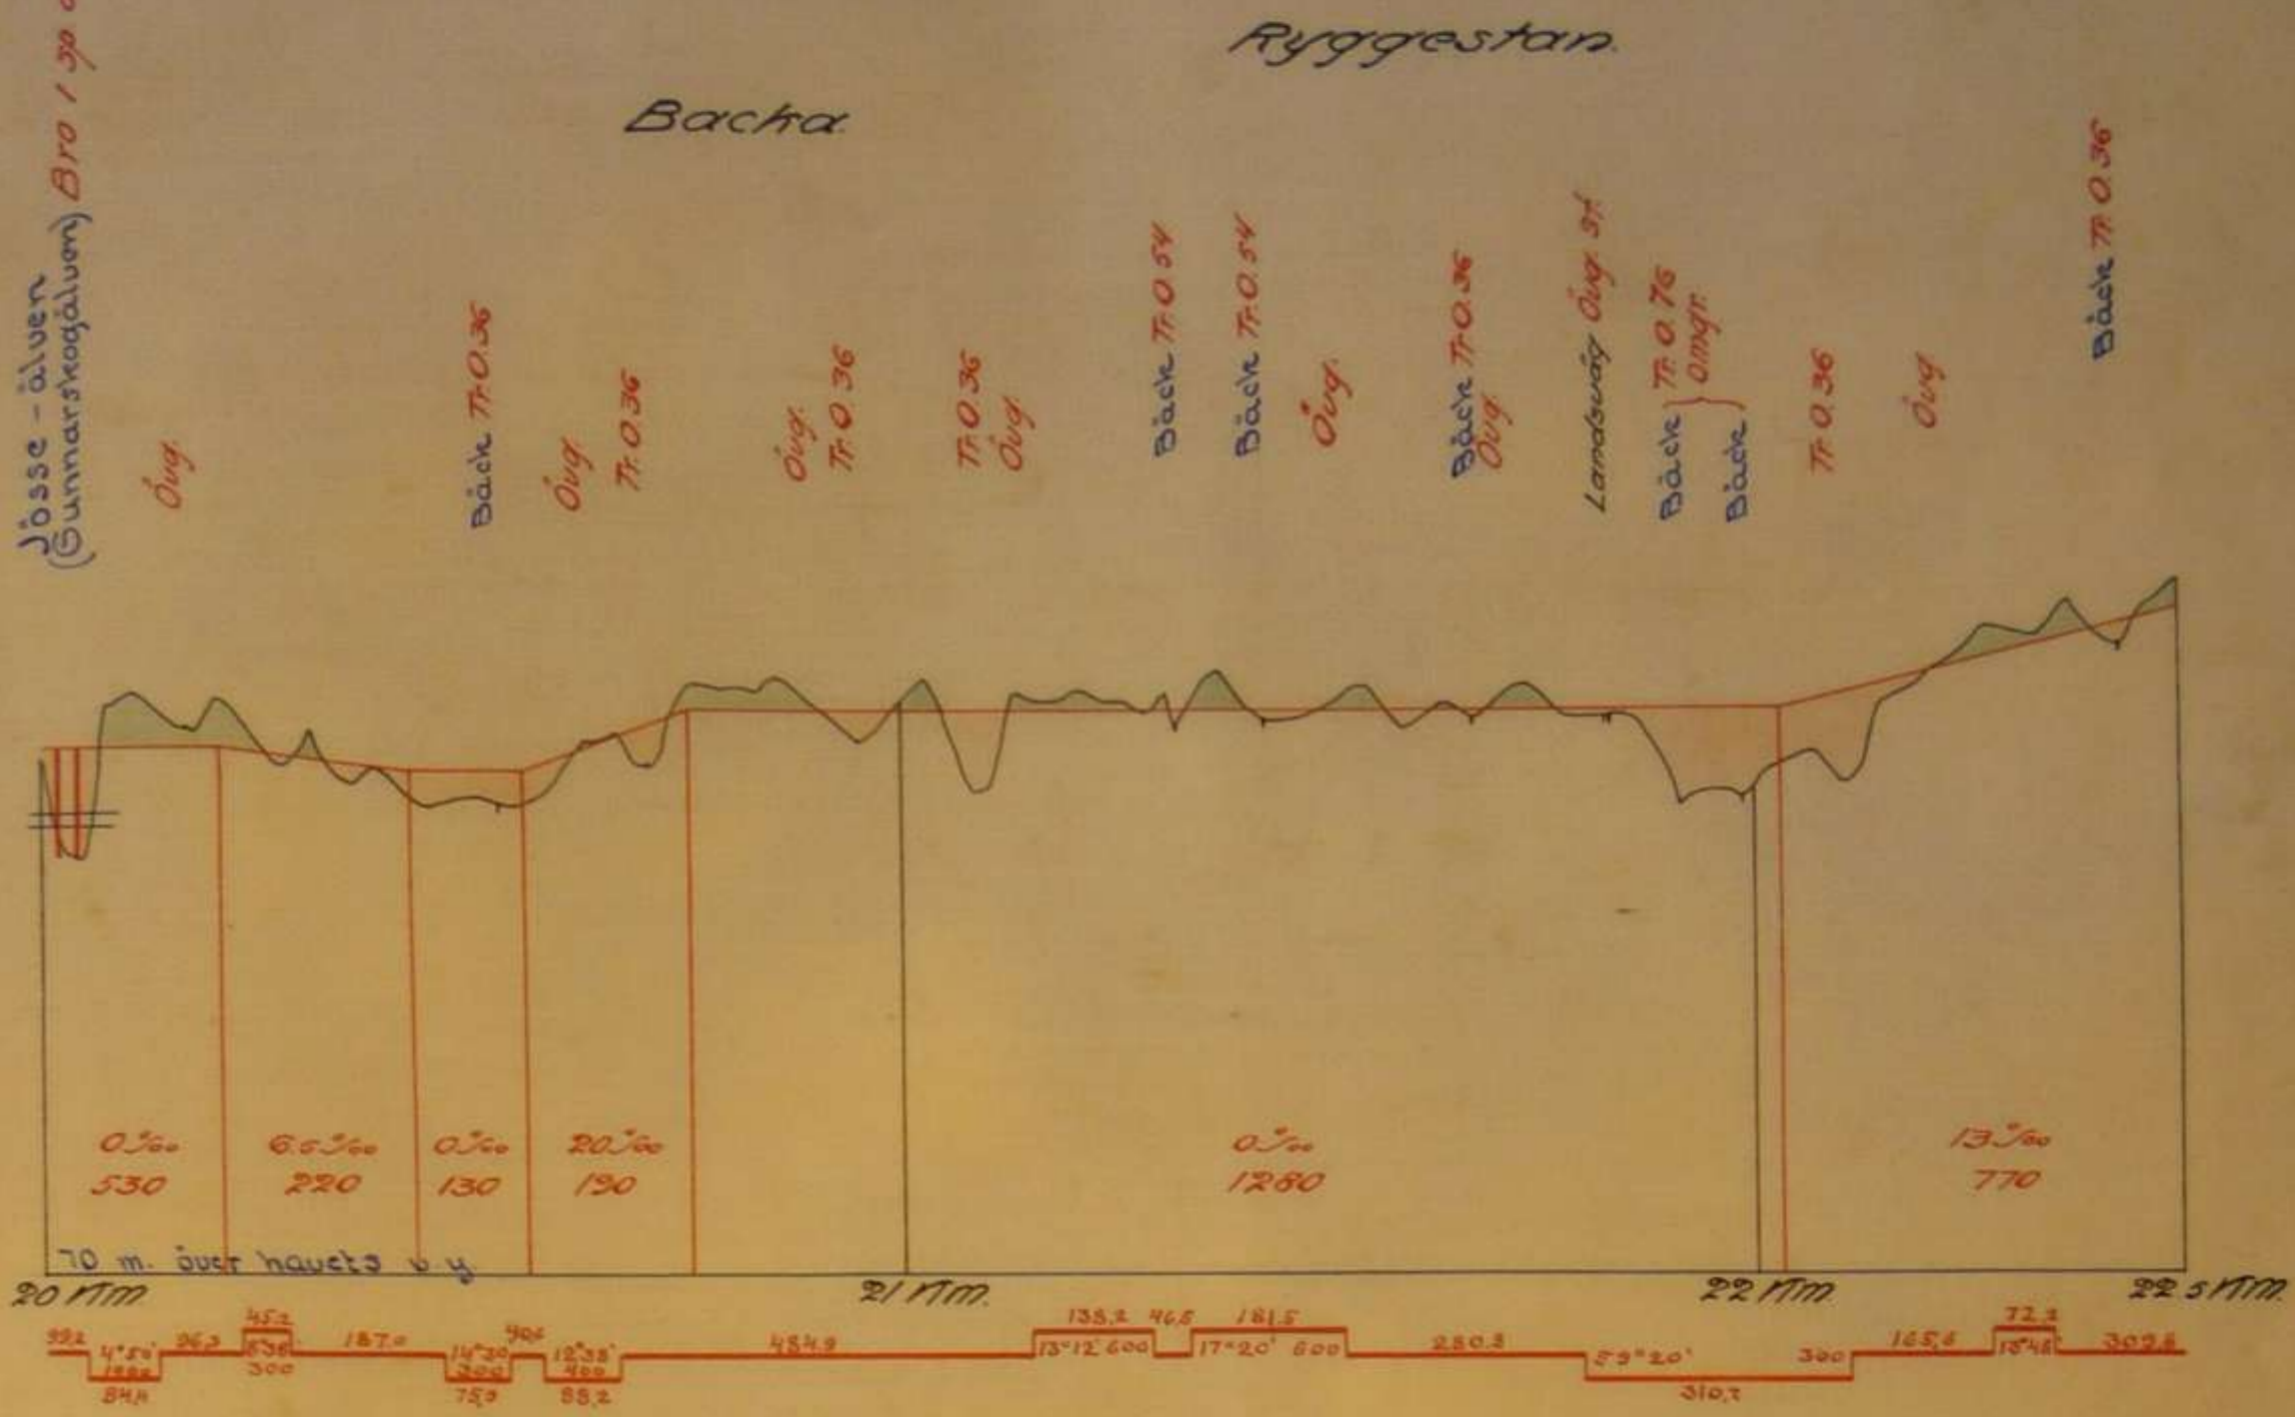 Ryggestan.
Backa.
Jösse-älven
(Gunnarskogälven) Bro 1 sp
Övg.
Bäck Tr. 0.36
Övg.
Tr. 0.36
Övg.
Tr. 0 36
Tr. 0 36
Övg.
Bäck Tr. 0 54
Bäck Tr. 0. 54
Övg.
Bäck Tr 0.36
Övg.
Landsväg Övg. st.
Bäck } Tr. 0 76
Omgr.
Bäck
Tr 0.36
Övg
Bäck Tr. 0.36
0 ‰
530
6.5 ‰
220
0 ‰
130
20 ‰
190
0 ‰
1280
13 ‰
770
70 m. över havets v. y.
20 Km.
21 Km.
22 Km.
22 5 Km.
99,2
4°50'
84,4
96,3
45,2
300
187.0
14°30'
300
75,9
40,6
12°38'
400
88,2
484.9
138,2
13°12' 600
46,5
181.5
17°20' 600
280.8
59°20' 300
310,7
165,6
309,8